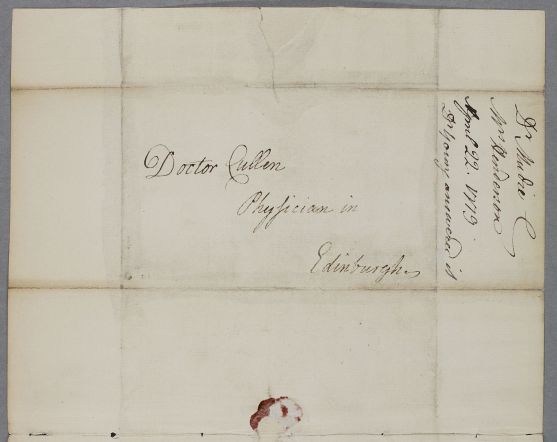 Doctor Cullen
Physician in
Edinburgh.
Dr Mudie C
Mrs Henderson
April 22. 1779.
Dr Young answered it